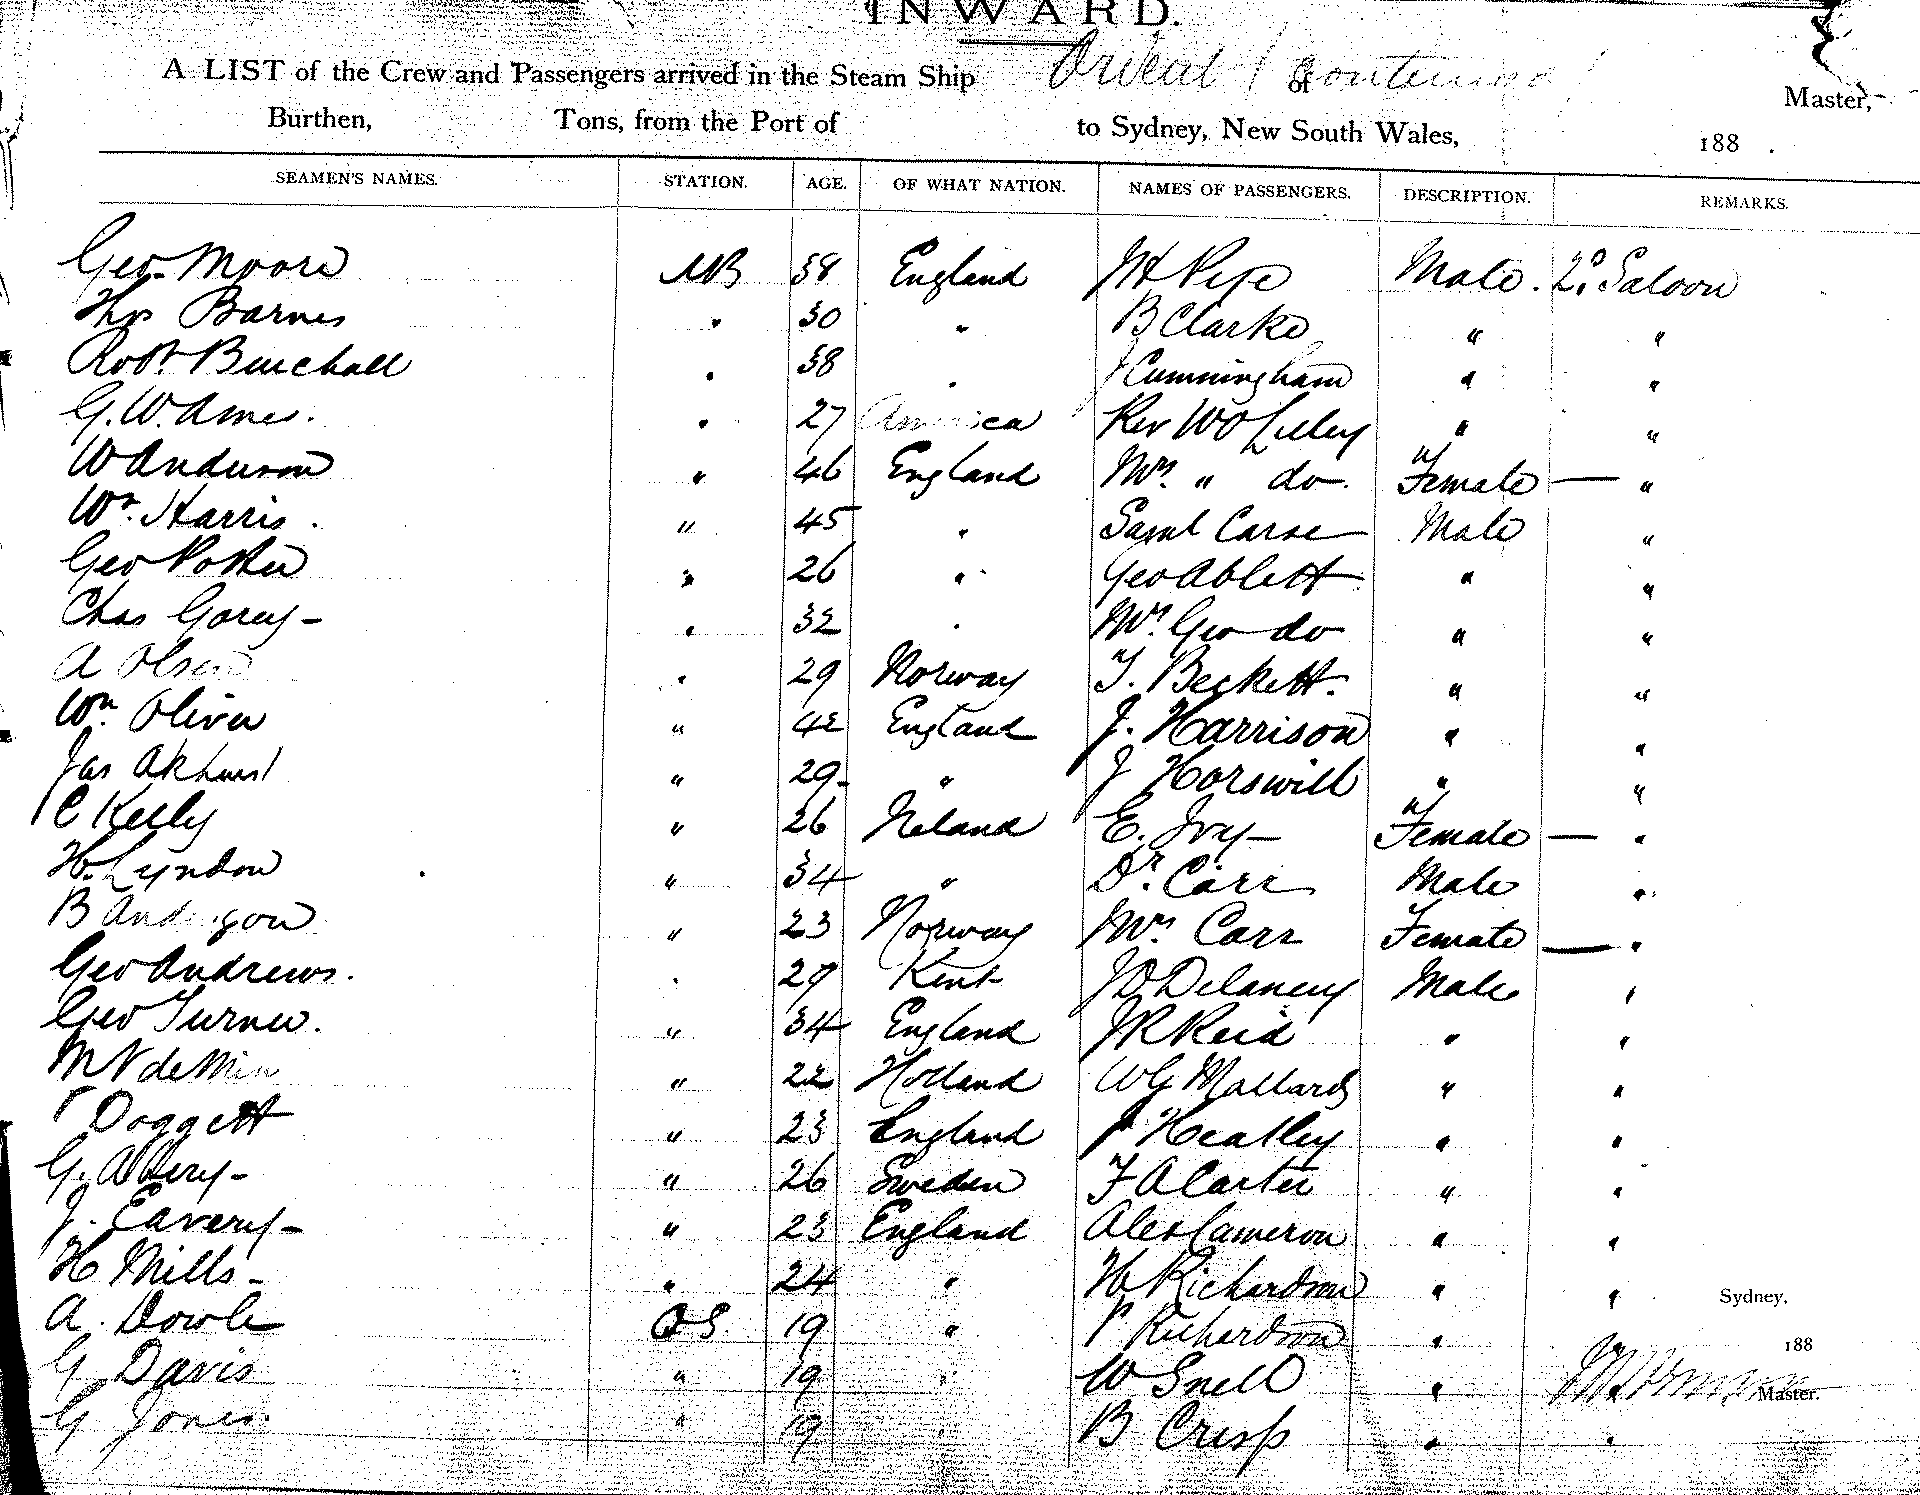 INWARD.
A LIST of the Crew and Passengers arrived in the Steam Ship of Master,
Burthen, Tons, from the Port of to Sydney, New South Wales, 188 .
SEAMEN'S NAMES. STATION. AGE. OF WHAT NATION. NAMES OF PASSENGERS. DESCRIPTION. REMARKS.
Geo. Moore AB 38 England Male. 2º Saloon
Thos Barnes " 30 " B Clarke " "
Robt Burchall " 38 " J Cunningham " "
G. W. 27 America Rev WO Lilley " "
W Anderson " 46 England Mrs. " do. " Female — "
Wm. Harris. " 45 " Saml Carse Male "
Geo Potter " 26 " Geo Ablett " "
Chas Gorey - " 32 " Mrs. Geo do " "
A Olsen " 29 Norway T. Beckett. " "
Wm Oliver " 42 England J. Harrison " "
Jas Akhurst " 29. " J Horswill " "
C Kelly " 26 Ireland E. Ivy - " Female — "
H. Lyndon " 34 " Dr. Carr Male "
B Anderson " 23 Norway Mrs Carr Female — "
Geo Andrews. " 29 Kent JD Delaney Male "
Geo Turner. " 34 England JR Reid " "
" 22 Holland WG Mallard " "
Doggett " 23 England Heatley " "
G. - " 26 Sweden F A Carter " "
J. Eavery - " 23 England Alex Cameron " "
H Mills - " 24 " H Richardson " " Sydney,
A. Dowle OS 19 " P Richardson " " 188
G Davis " 19 " W Snell " Master.
G Jones. " 19 " B Crisp " "